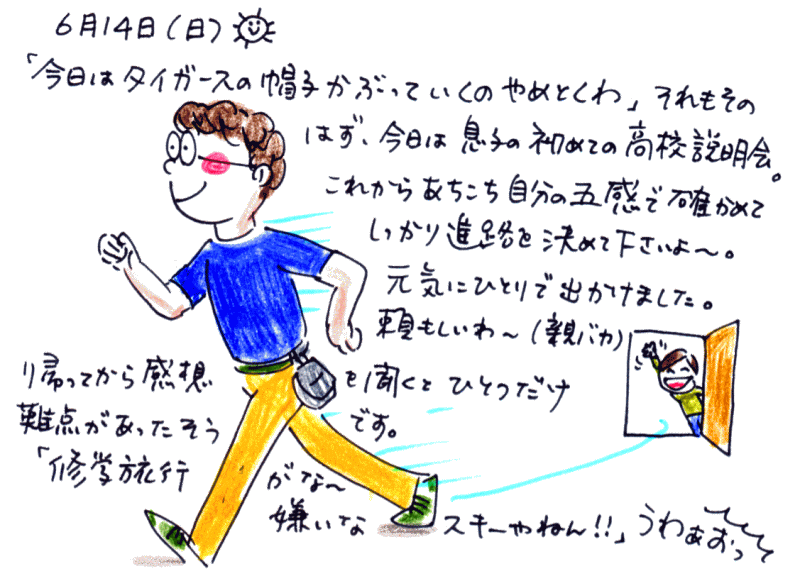 6月14日(日)
「今日はタイガースの帽子かぶっていくのやめとくわ」それもその
はず、今日は息子の初めての高校説明会。
これからあちこち自分の五感で確かめて
しっかり進路を決めて下さいよ〜。
元気にひとりで出かけました。
頼もしいわ〜(親バカ)
り帰ってから感想を聞くとひとつだけ
難点があったそうです。
「修学旅行がな〜
嫌いなスキーやねん!!」うわぁおっ